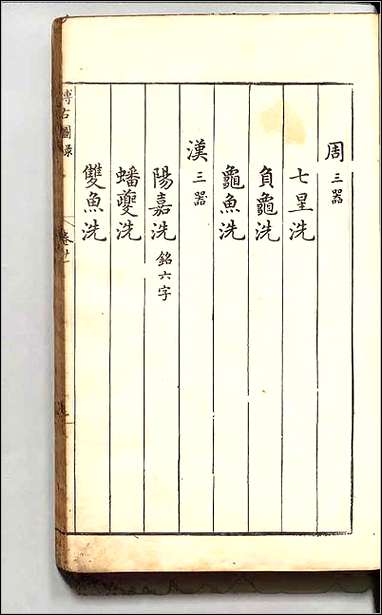 周 三器
七星洗
負龜洗
龜魚洗
漢 三器
陽嘉洗 銘六字
蟠夔洗
雙魚洗
博古圖錄